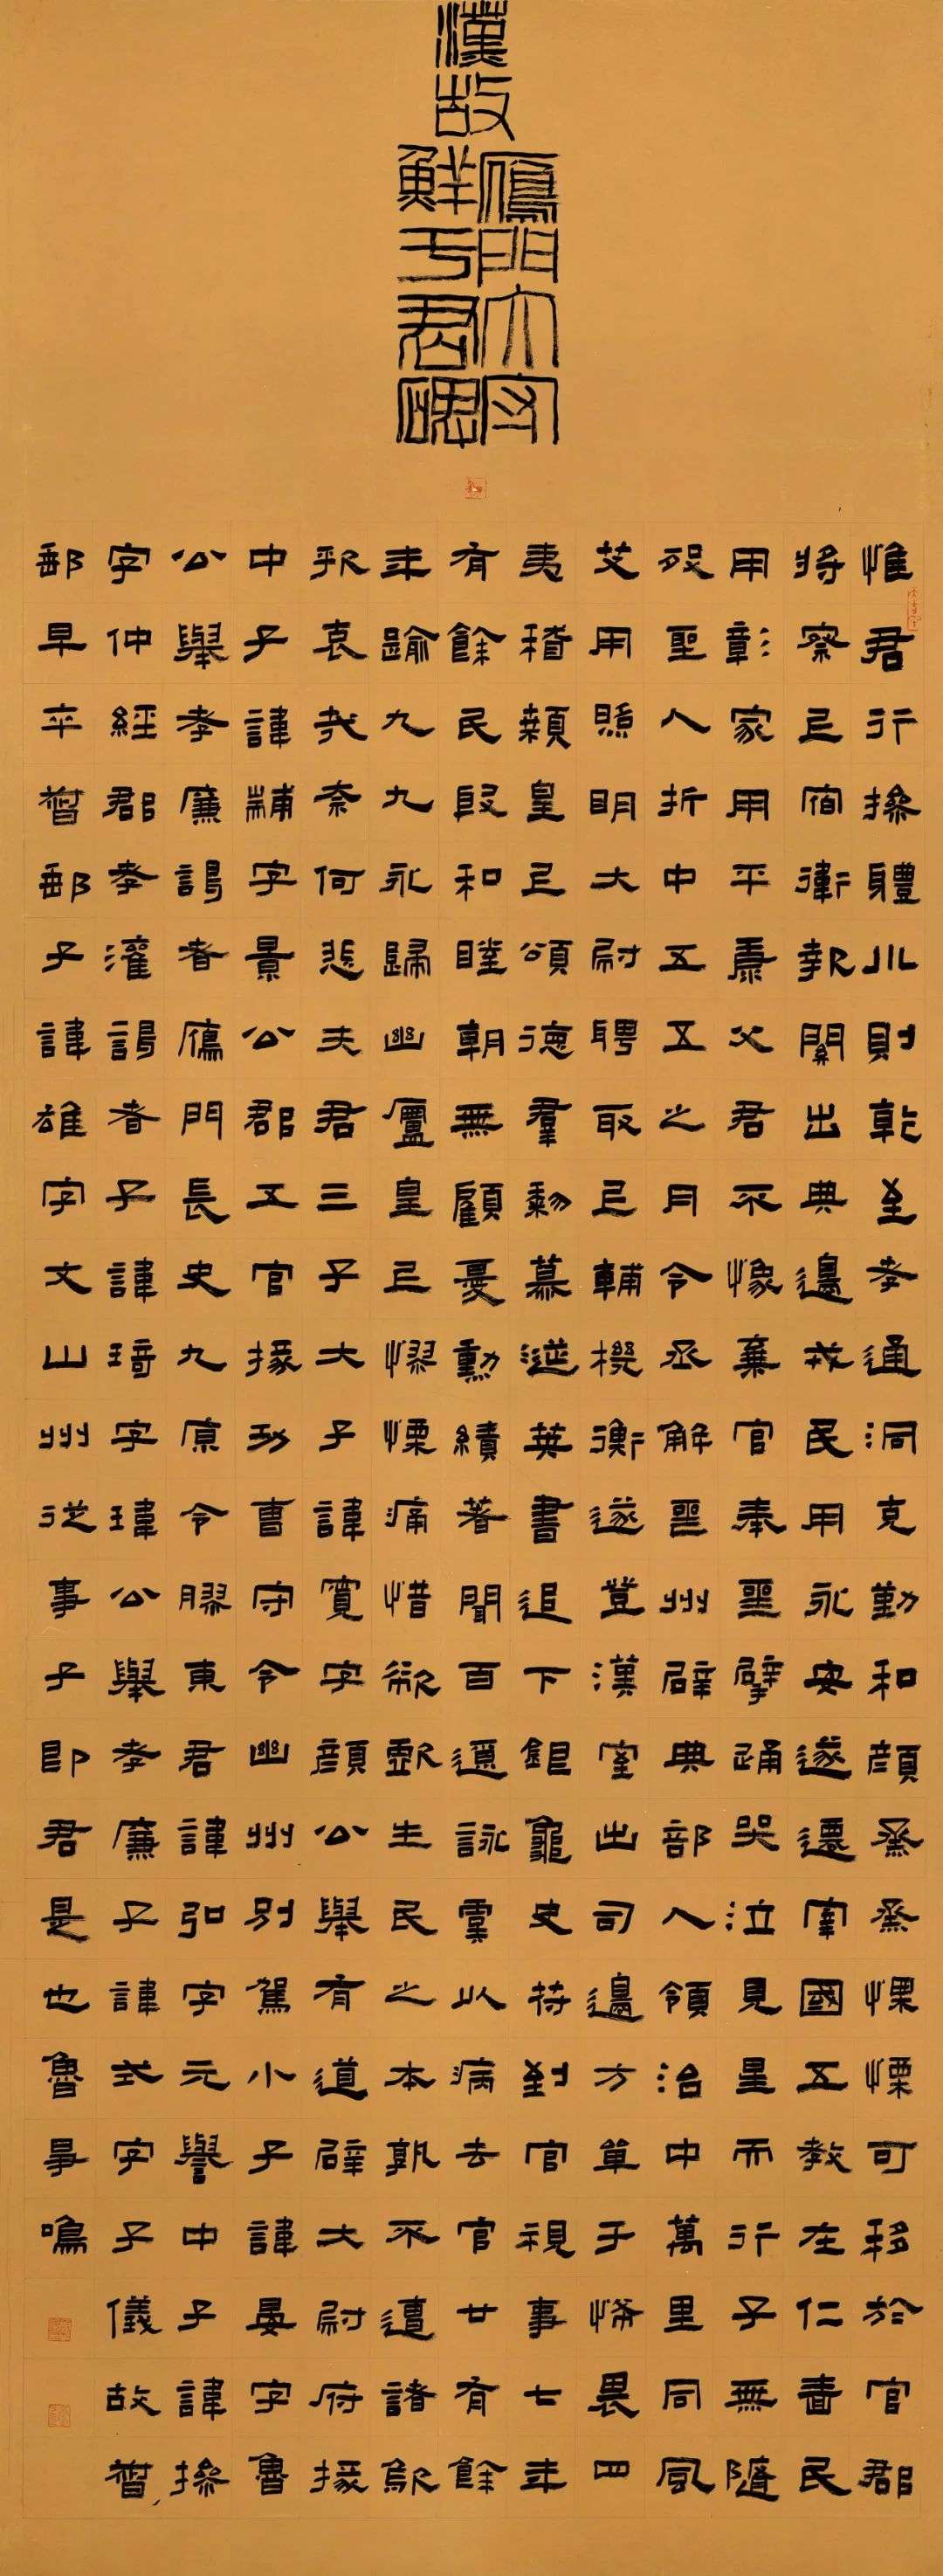 漢故
鴈門大守
鮮于君碑
惟君行操體川則乾至孝通洞克勤和顏烝烝慄慄可移於官郡
將察㠯宿衛報關出典邊戎民用永安遂遷宰國五教在仁嗇民
用彰家用平康父君不像棄官奉喪擗踊哭泣見星而行子無隨
歿聖人折中五五之月令丞解喪州辟典部入領治中萬里同風
艾用照明大尉聘取㠯輔機衡遂登漢室出司邊方單于怖畏四
夷稽顙皇㠯頌德羣黎慕涎英書追下銀龜史符到官視事七年
有餘民殷和睦朝無顧憂勳績著聞百遼詠虞以病去官廿有餘
年踰九九永歸幽廬皇㠯憀慄痛惜欷歔生民之本孰不遭諸歍
歑哀哉奈何悲夫君三子大子諱寬字顏公舉有道辟大尉府掾
中子諱黼字景公郡五官掾功曹守令幽州別駕小子諱晏字魯
公舉孝廉謁者鴈門長史九原令膠東君諱弘字元譽中子諱操
字仲經郡孝灌謁者子諱琦字瑋公舉孝廉子諱式字子儀故督
郵早卒督郵子諱雄字文山州從事子即君是也魯鳴